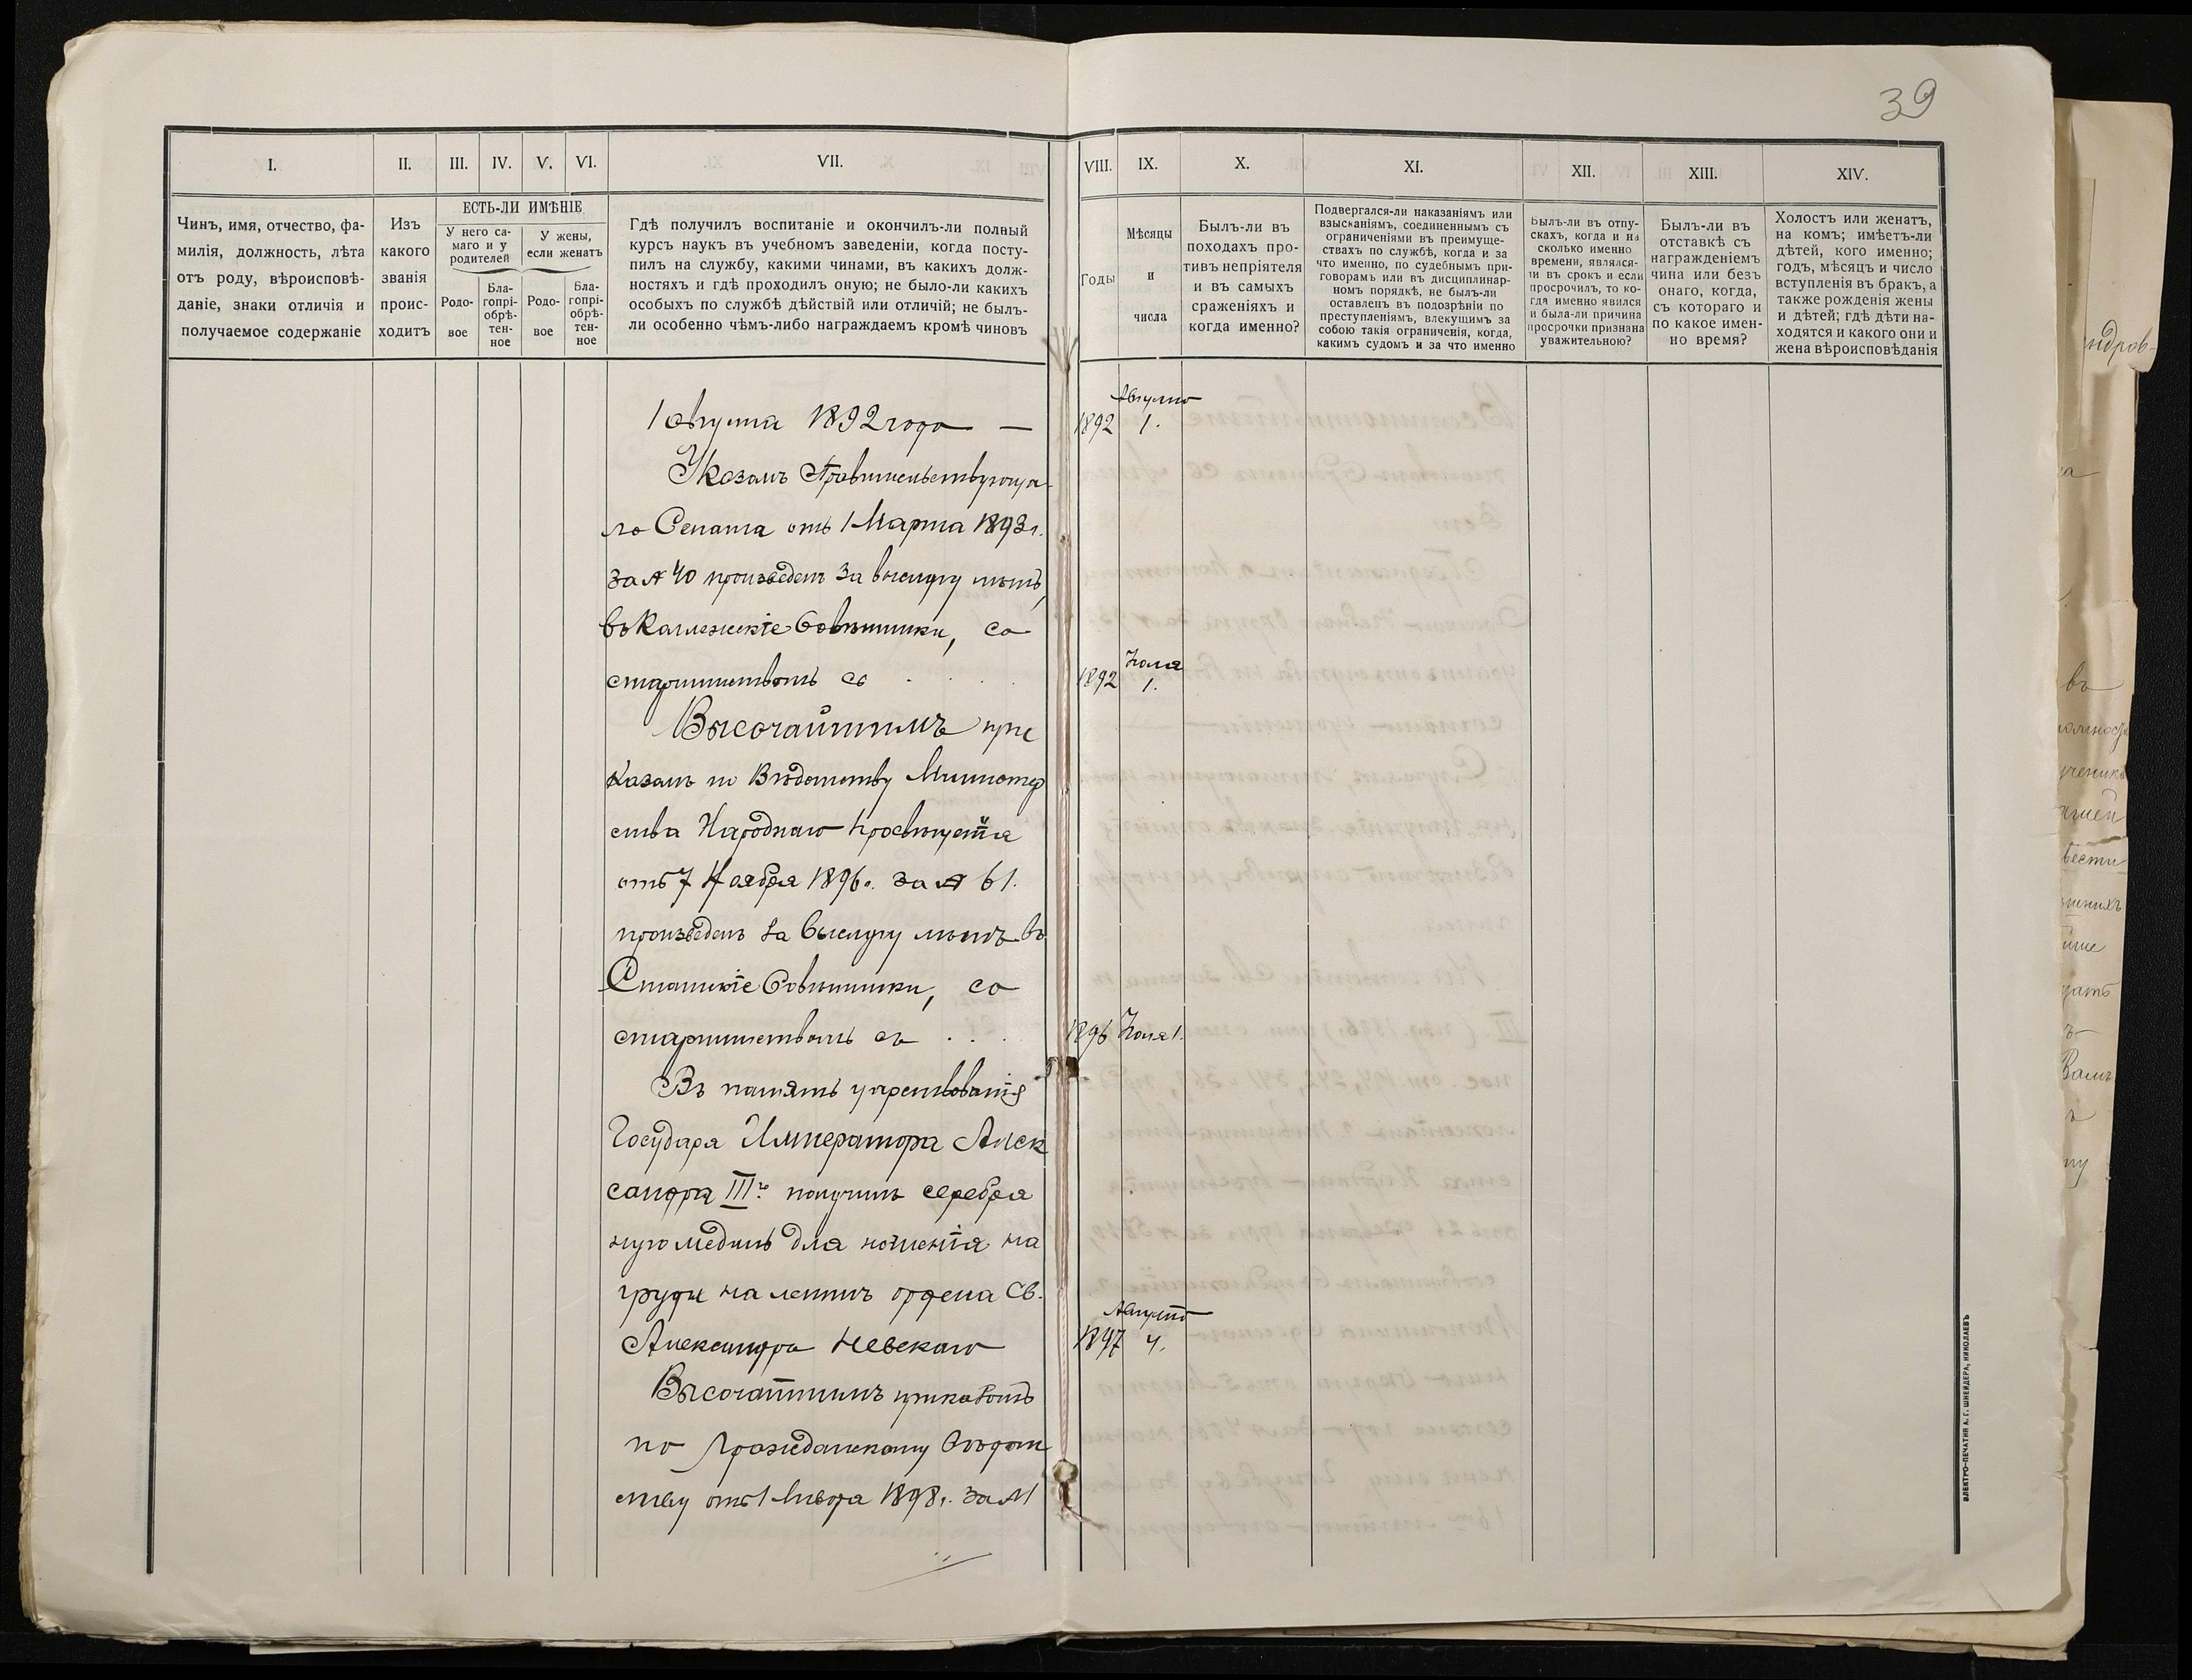 39
I. II. III. IV. V. VI. VII. VIII. IX. X. XI. XII. XIII. XIV.
Чинъ, имя, отчество, фа-
милія, должность, лѣта
отъ роду, вѣроисповѣ-
даніе, знаки отличія и
получаемое содержаніе
Изъ
какого
званія
проис-
ходитъ
ЕСТЬ-ЛИ ИМѢНІЕ
У него са-
маго и у
родителей
У жены,
если женатъ
Родо-
вое
Бла-
гопрі-
обрѣ-
тен-
ное
Родо-
вое
Бла-
гопрі-
обрѣ-
тен-
ное
Гдѣ получилъ воспитаніе и окончилъ-ли полный
курсъ наукъ въ учебномъ заведеніи, когда посту-
пилъ на службу, какими чинами, въ какихъ долж-
ностяхъ и гдѣ проходилъ оную; не было-ли какихъ
особыхъ по службѣ дѣйствій или отличій; не былъ-
ли особенно чѣмъ-либо награждаемъ кромѣ чиновъ
Годы
Мѣсяцы
и
числа
Былъ-ли въ
походахъ про-
тивъ непріятеля
и въ самыхъ
сраженіяхъ и
когда именно?
Подвергался-ли наказаніямъ или
взысканіямъ, соединеннымъ съ
ограниченіями въ преимуще-
ствахъ по службѣ, когда и за
что именно, по судебнымъ при-
говорамъ или въ дисциплинар-
номъ порядкѣ, не былъ-ли
оставленъ въ подозрѣніи по
преступленіямъ, влекущимъ за
собою такія ограниченія, когда,
какимъ судомъ и за что именно
Былъ-ли въ отпу-
скахъ, когда и на
сколько именно
времени, являлся-
ли въ срокъ и если
просрочилъ, то ко-
гда именно явился
и была-ли причина
просрочки признана
уважительною?
Былъ-ли въ
отставкѣ съ
награжденіемъ
чина или безъ
онаго, когда,
съ котораго и
по какое имен-
но время?
Холостъ или женатъ,
на комъ; имѣетъ-ли
дѣтей, кого именно;
годъ, мѣсяцъ и число
вступленія въ бракъ, а
также рожденія жены
и дѣтей; гдѣ дѣти на-
ходятся и какого они и
жена вѣроисповѣданія
1 августа 1892 года — 1892 Августа 1.
Указомъ Правительствующа-
го Сената отъ 1 Марта 1893 г.
за № 40 произведенъ за выслугу лѣтъ,
въ Коллежскіе Совѣтники, со
старшинствомъ съ . . . . 1892 Іюля 1.
Высочайшимъ при
казомъ по Вѣдомству Министер
ства Народнаго Просвѣщенія
отъ 7 Ноября 1896 г. за № 61.
произведенъ за выслугу лѣтъ въ
Статскіе Совѣтники, со
старшинствомъ съ . . . 1896 Іюля 1.
Въ память царствованія
Государя Императора Алек
сандра III го получилъ серебря
ную медаль для ношенія на
груди на лентѣ ордена Св.
Александра Невскаго 1897 Августа 4.
Высочайшимъ приказомъ
по Гражданскому Вѣдом
ству отъ 1 Января 1898 г. за № 1
ЭЛЕКТРО-ПЕЧАТНЯ А. Г. ШНЕЙДЕРА, НИКОЛАЕВЪ